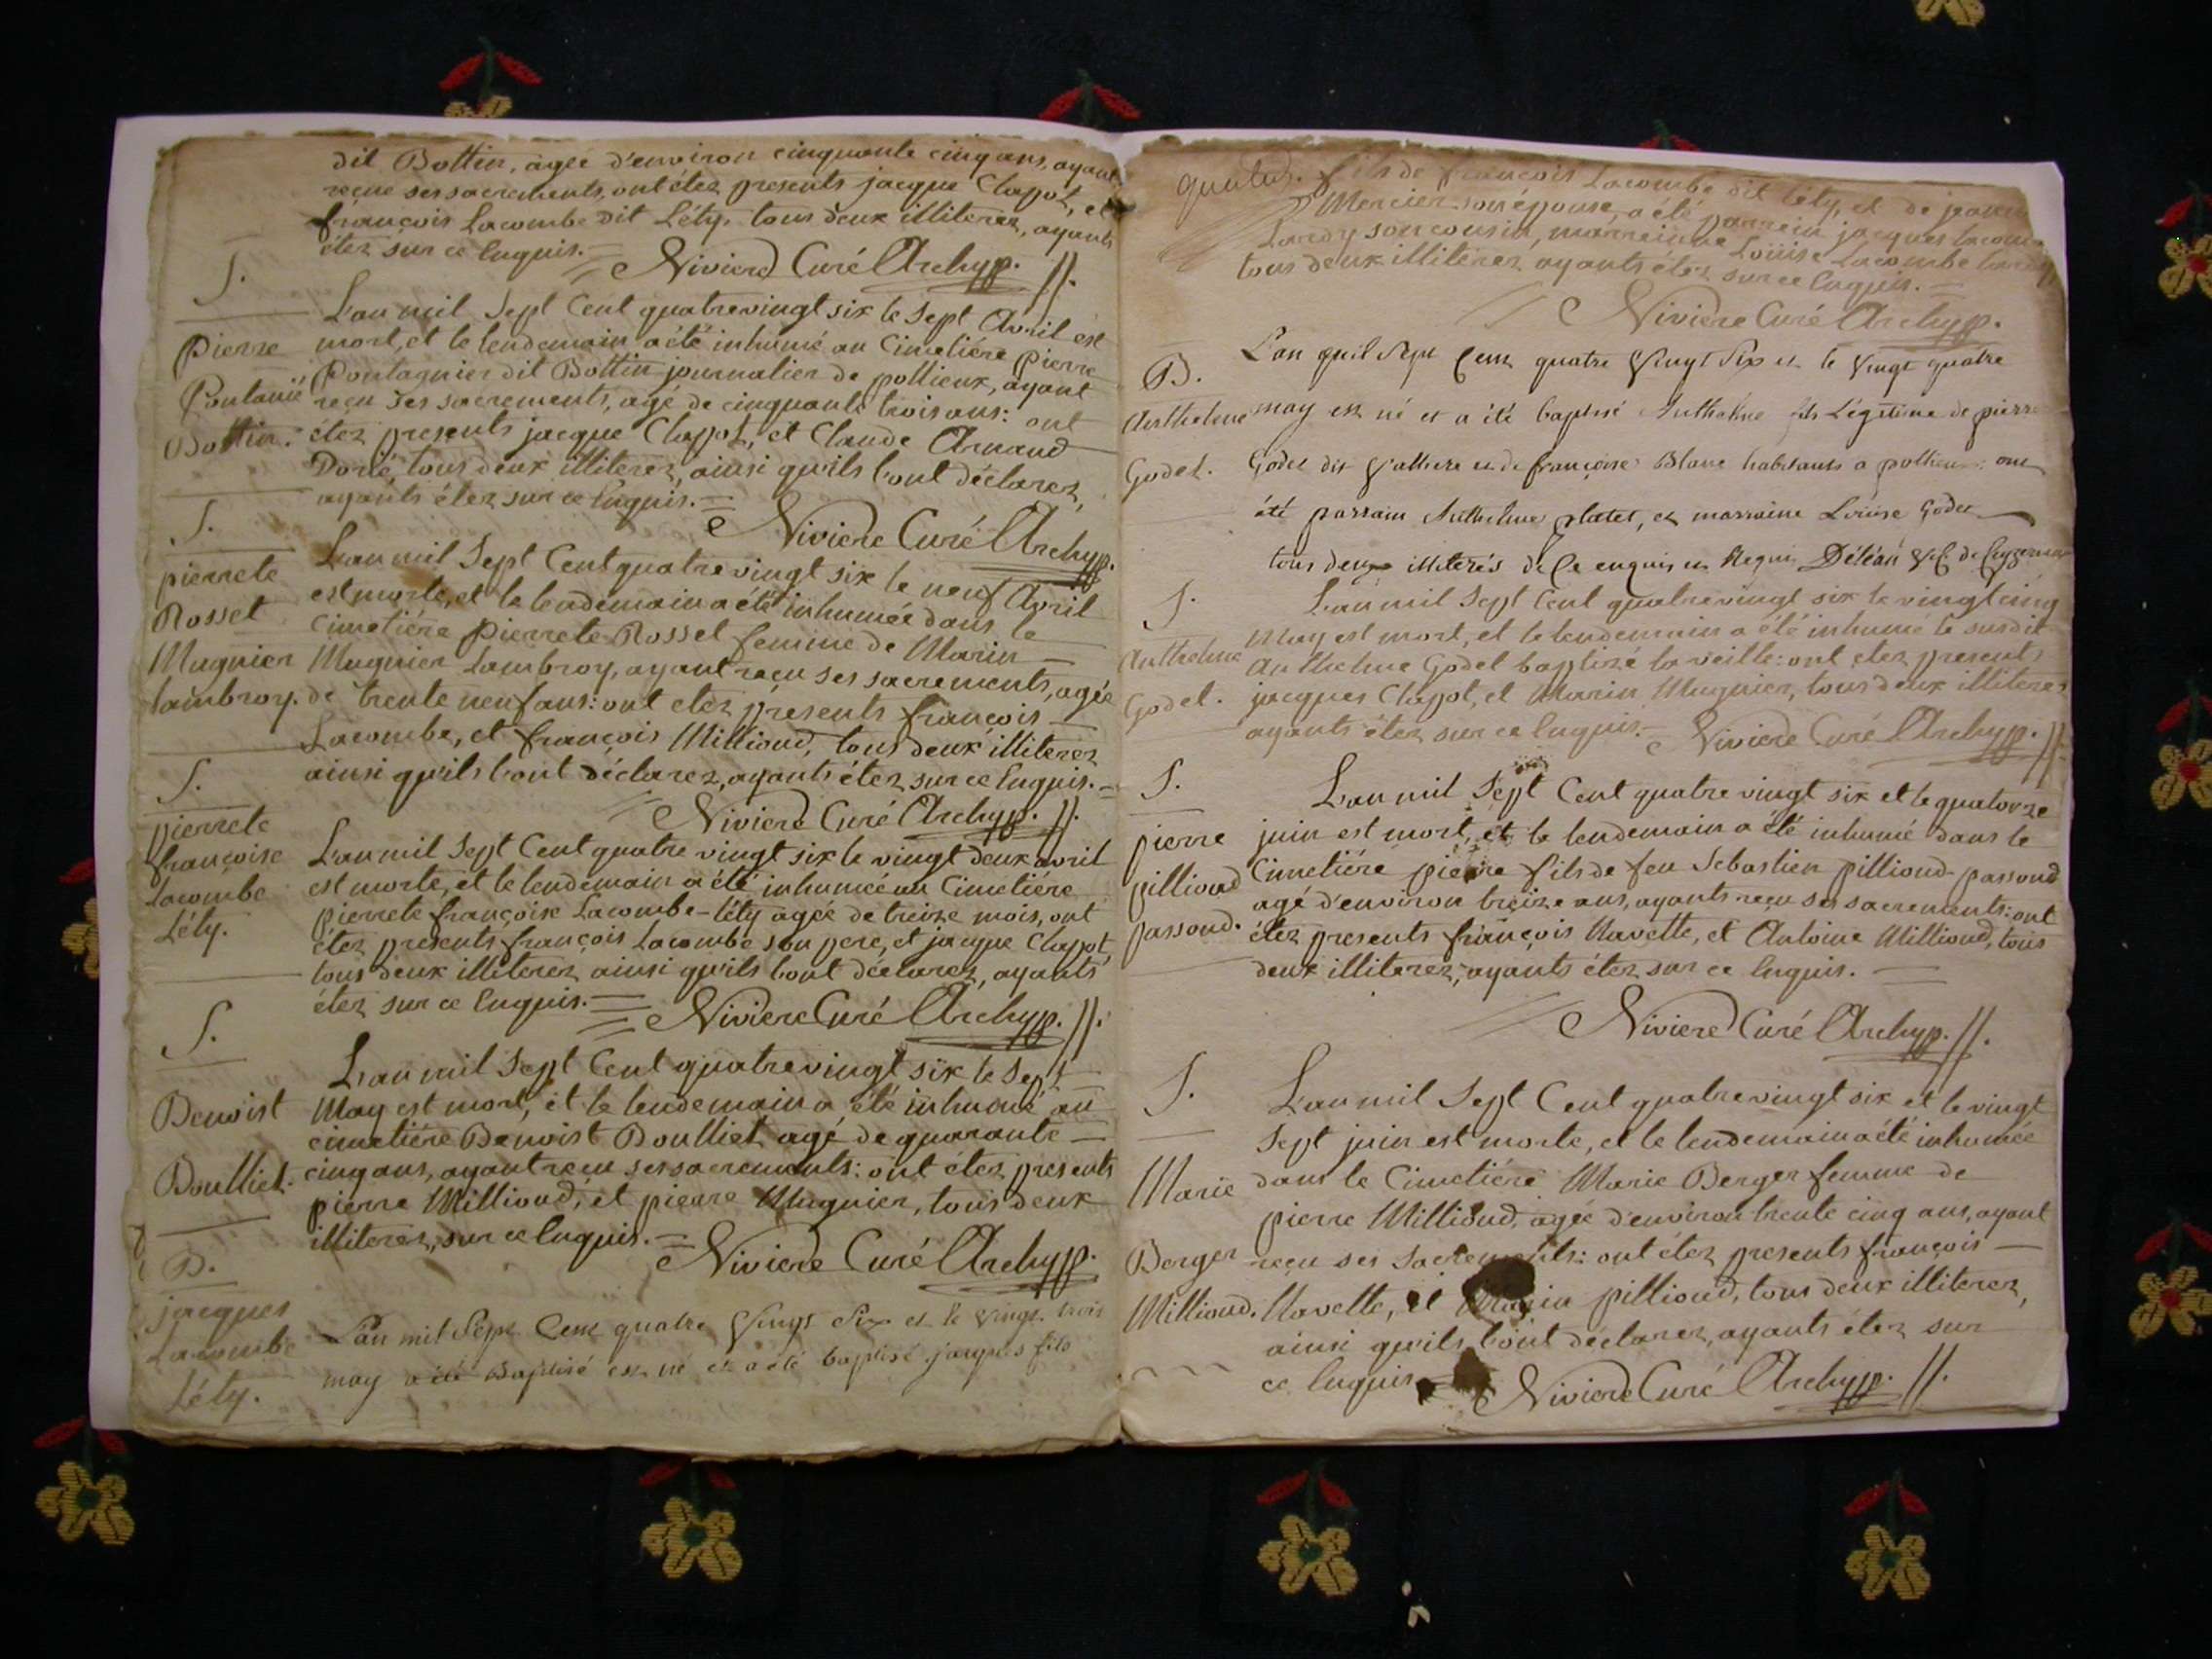 dit Bottin, agée d'environ cinquante cinq ans, ayant
reçue ses sacrements, ont étez presents jacque Clapot, et
françois Lacombe dit Léty, tous deux illiterez, ayants
étez sur ce Enquis.
Niviere Curé Archyp.
S.
Pierre
Pontanié
Bottin.
L'an mil Sept Cent quatrevingt six le Sept Avril est
mort, et le lendemain a été inhumé au Cimetiére Pierre
Pontagnier dit Bottin journalier de pollieux, ayant
reçu Ses sacrements, agé de cinquante trois ans: ont
étez presents jacque Clapot, et Claude Arnaud
Doné, tous deux illiterez, ainsi qu'ils l'ont déclarez,
ayants étez sur ce Enquis.
Niviere Curé Archyp.
S.
pierrete
Rosset
Mugnier
lambroy.
L'an mil Sept Cent quatre vingt six le neuf Avril
est morte, et le lendemain a été inhumée dans le
Cimetiére Pierrete Rosset femme de Marin
Mugnier Lambroy, ayant reçu ses sacrements, agée
de trente neuf ans: ont etez présents françois
Lacombe, et françois Millioud, tous deux illiterez
ainsi qu'ils l'ont déclarez, ayants étez sur ce Enquis.
Niviere Curé Archyp.
S.
pierrete
françoise
Lacombe
Léty.
L'an mil Sept Cent quatre vingt six le vingt deux avril
est morte, et le lendemain a été inhumée au Cimetiére
pierrete françoise Lacombe-léty agée de treize mois, ont
étez presents françois Lacombe son pere, et jacque Clapot,
tous deux illiterez ainsi qu'ils l'ont déclarez, ayants
étez sur ce Enquis.
Niviere Curé Archyp.
S.
Benoist
Doulliet.
L'an mil Sept Cent quatrevingt six le Sept
May est mort, et le lendemain a été inhumé au
cimetiére Benoist Doulliet agé de quarante
cinq ans, ayant reçu ses sacrements: ont étez presents
pierre Millioud, et pierre Mugnier, tous deux
illiterez, sur ce Enquis.
Niviere Curé Archyp.
B.
jacques
Lacombe
Léty.
L'an mil Sept Cent quatre Vingt Six et le Vingt trois
may a été Baptisé est né et a été baptisé jacques fils
fils de françois Lacombe dit Léty, et de jeanne
Mercier son épouse, a été parrein jacques lacombe
Lardy son cousin, marreinne Loüise Lacombe
tous deux illiterez ayants étez sur ce Enquis.
Niviere Curé Archyp.
B.
Anthelme
Godet.
L'an mil Sept Cent quatre Vingt Six et le Vingt quatre
may est né et a été baptisé Anthelme fils Légitime de pierre
Godet dit et de françoise Blanc habitants a pollieux: ont
été parrain Anthelme platet, et marraine Loüise Godet
tous deux illiterés de Ce enquis et Requis Déléan
S.
Anthelme
Godet.
L'an mil Sept Cent quatrevingt six le vingt cinq
May est mort, et le lendemain a été inhumé le susdit
Anthelme Godet baptizé la veille: ont étez presents
jacques Clapot, et Marin Mugnier, tous deux illiterez
ayants étez sur ce Enquis.
Niviere Curé Archyp.
S.
pierre
pillioud
passond.
L'an mil Sept Cent quatre vingt six et le quatorze
juin est mort, et le lendemain a été inhumé dans le
Cimetiére pierre fils de feu Sebastien pillioud-passond
agé d'environ treize ans, ayants reçu ses sacrements: ont
étez presents françois Navette, et Antoine Millioud, tous
deux illiterez, ayants étez sur ce Enquis.
Niviere Curé Archyp.
S.
Marie
Berger
Millioud.
L'an mil Sept Cent quatrevingt six et le vingt
Sept juin est morte, et le lendemain a été inhumée
dans le Cimetiére Marie Berger femme de
pierre Millioud, agée d'environ trente cinq ans, ayant
reçu ses Sacrements: ont étez presents françois
Navette, et Marin pillioud, tous deux illiterez,
ainsi qu'ils l'ont déclarez, ayants étez sur
ce Enquis
Niviere Curé Archyp.